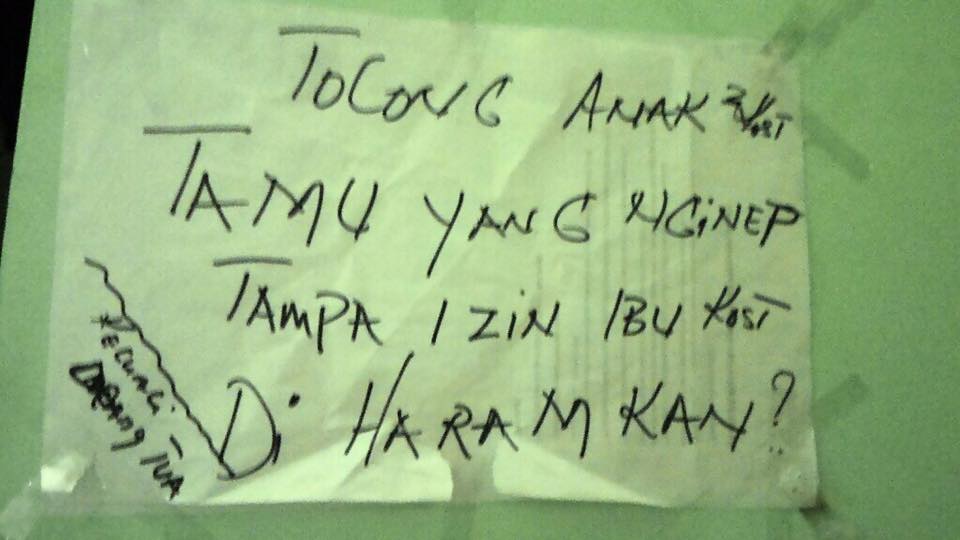 TOLONG ANAK² KOST
TAMU YANG NGINEP
TAMPA IZIN IBU KOST
Di HARAMKAN?
KECUALI
ORANG TUA